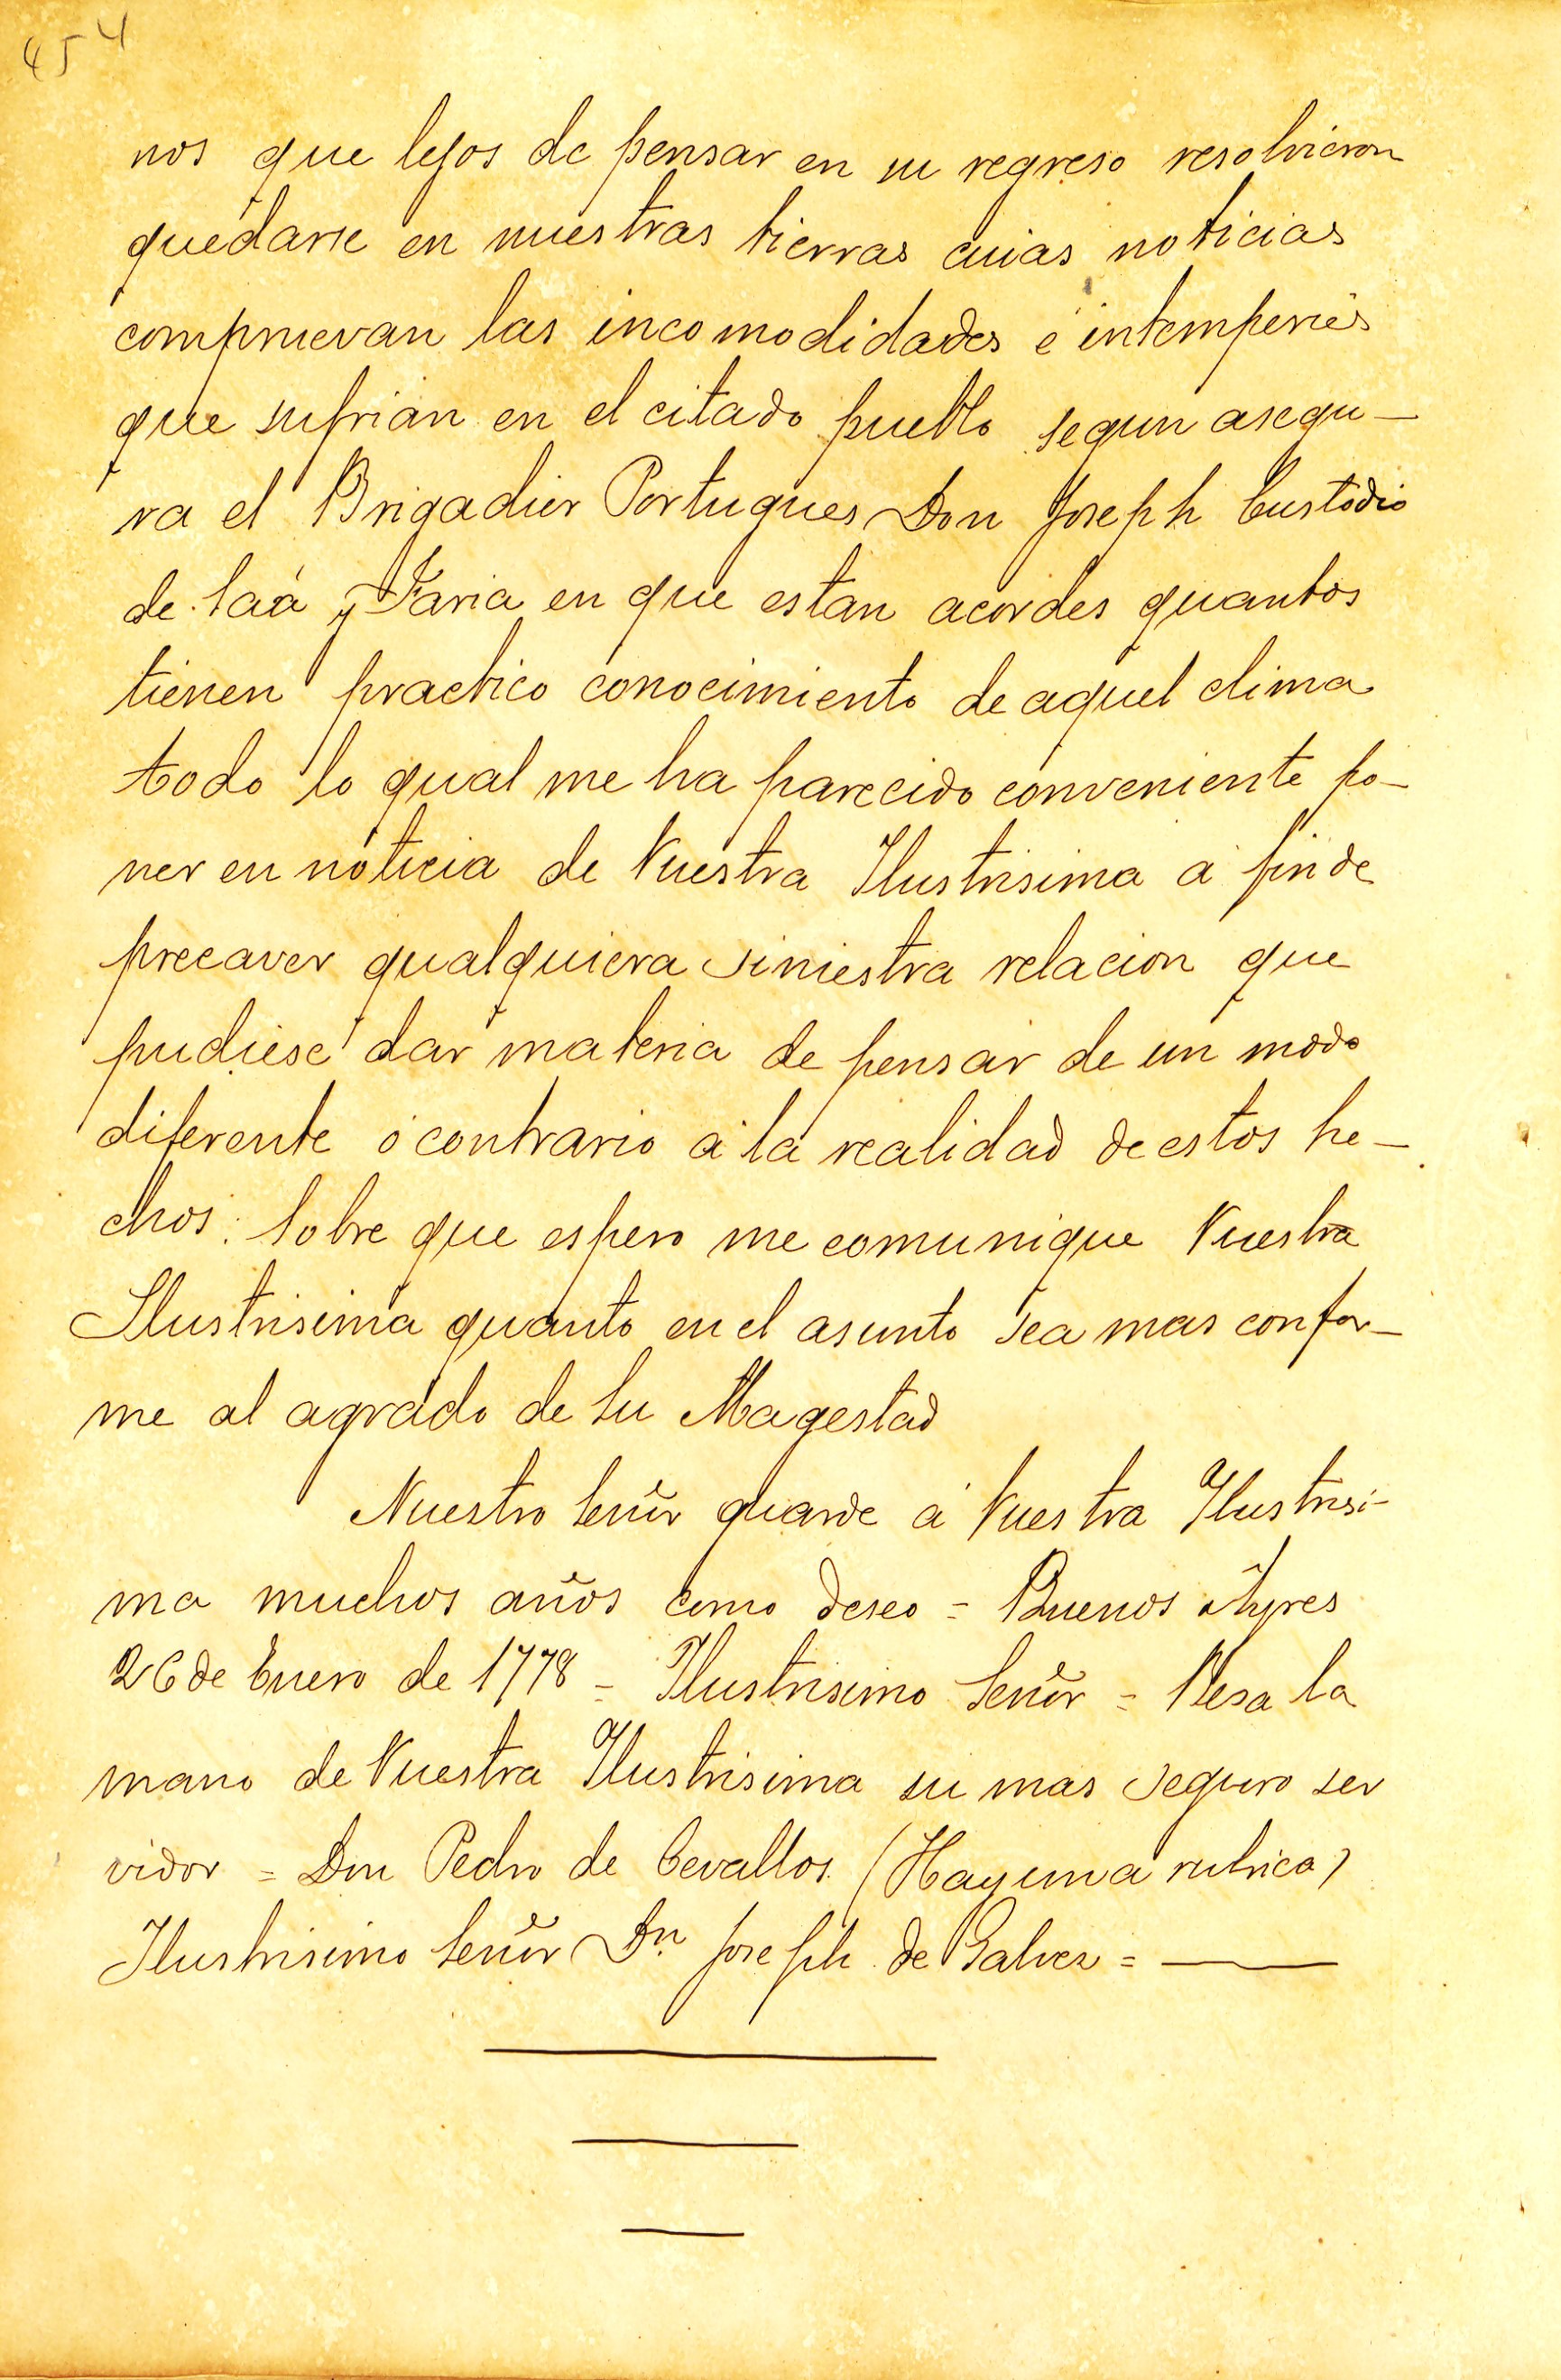 454
nos que lejos de pensar en su regreso resolvieron
quedarse en nuestras tierras cuias noticias
compruevan las incomodidades é intemperies
que sufrian en el citado pueblo segun asegu-
ra el Brigadier Portugues Don Joseph Custodio
de Saá y Faria en que estan acordes quantos
tienen practico conocimiento de aquel clima
todo lo qual me ha parecido conveniente po-
ner en noticia de Vuestra Ilustrisima á fin de
precaver qualquiera siniestra relacion que
pudiese dar materia de pensar de un modo
diferente ó contrario á la realidad de estos he-
chos: Sobre que espero me comunique Vuestra
Ilustrisima quanto en el asunto sea mas confor-
me al agrado de Su Magestad
Nuestro Señor guarde á Vuestra Ilustrisi-
ma muchos años como deseo = Buenos Ayres
26 de Enero de 1778 = Ilustrisimo Señor = Besa la
mano de Vuestra Ilustrisima su mas seguro ser
vidor = Don Pedro de Cevallos (Hay una rubrica)
Ilustrisimo Señor Dn. Joseph de Galvez =